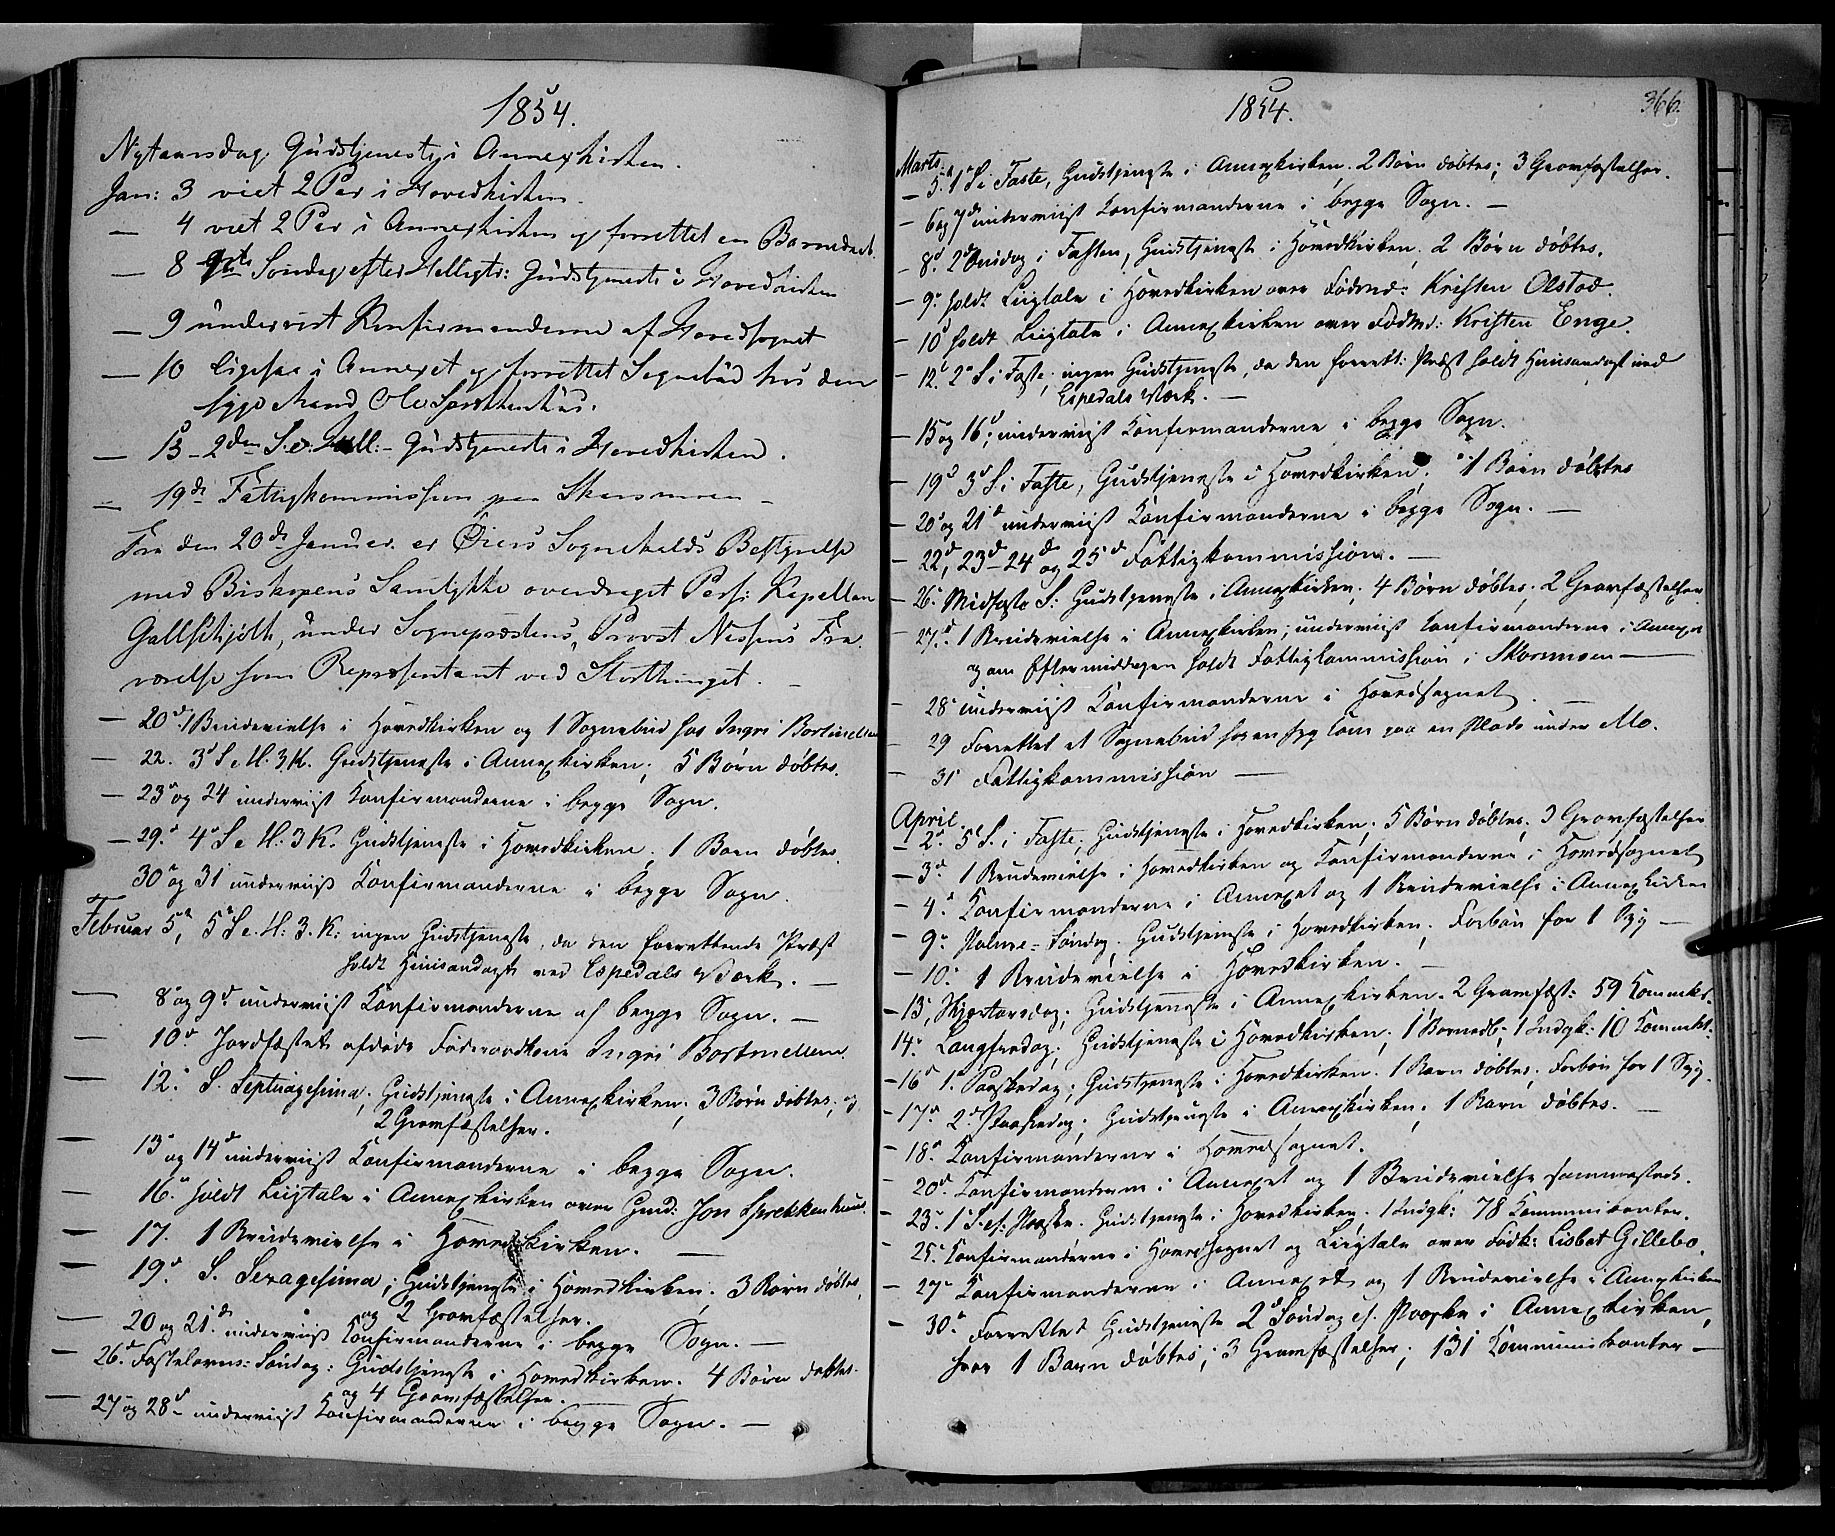 1854.
Nytaarsdag, Gudstjeneste i Annexkirken.
Jan: 3 viet 2 Par i Hovedkirken.
— 4 viet 2 Par i Annexkirken og forrettet en Barnedaab.
— 8 1ste Søndag efter Helligtr: Gudstjeneste i Hovedkirken
— 9 undervist Konfirmanderne af Hovedsognet
— 10 ligesaa i Annexet og forrettet Sognebud hos den
syge Mand Ole
— 15 – 2den S. e. Hell: – Gudstjeneste i Hovedkirken.
— 19de Fattigkommission paa Skarsmoen –
Fra den 20de Januar er Øiers Sognekalds Bestyrelse
med Biskopens Samtykke overdraget Pers: Kapellan
Gullchjølh, under Sognepræstens, Provst Nissens Fra-
værelse som Repræsentant ved Storthinget. –
— 20de 1 Brudevielse i Hovedkirken og 1 Sognebud hos Ingri Bortmellem
— 22. 3d S. e. H. 3 K. Gudstjeneste i Annexkirken; 5 Børn døbtes.
— 23d og 24 underviist Konfirmanderne i begge Sogn.
— 29d 4d S e H: 3 K. Gudstjeneste i Hovedkirken; 1 Barn døbtes.
30d og 31 underviist Konfirmanderne i begge Sogn.
Februar 5d, 5d S e. H: 3. K: ingen Gudstjeneste, da den forrettende Præst
holdt Huusandagt ved Espedals Værk. —
— 8d og 9d underviist Konfirmanderne af begge Sogn. —
10d Jordfæstet afdøde Føderaadkone Ingri Bortmellem.
— 12d S. Septuagesima; Gudstjeneste i Annexkirken; 3 Børn døbtes; og
2 Gravfæstelser.
— 13d og 14d underviist Konfirmanderne i begge Sogn.
— 16d holdt Liigtale i Annexkirken over Gmd: Jon Sprekkenhuus.
— 17. 1 Brudevielse i Hovedkirken. —
— 19d S. Sexagesima; Gudstjeneste i Hovedkirken; 3 Børn døbtes,
og 2 Gravfæstelser.
— 20 og 21de underviist Konfirmanderne i begge Sogn. —
— 26d Fastelavns: Søndag: Gudstjeneste i Hovedkirken. 4 Børn døbtes.
og 4 Gravfæstelser.
— 27 og 28d underviist Konfirmanderne i begge Sogn. —
366.
1854.
Marts
— 5d 1d S i Faste, Gudstjeneste i Annexkirken. 2 Børn døbtes; 3 Gravfæstelser.
— 6 og 7d underviist Konfirmanderne i begge Sogn. —
— 8d 2d Onsdag i Fasten, Gudstjeneste i Hovedkirken, 2 Børn døbtes.
— 9d holdt Liigtale i Hovedkirken over Fødmd: Kristen Olstad.
— 10d holdt Liigtale i Annexkirken over Fødmd: Kristen Enge.
— 12d 2d S i Faste; ingen Gudstjeneste, da den forrett: Præst holdt Huusandagt ved
Espedals Værk. —
— 15 og 16d; underviist Konfirmanderne i begge Sogn.
— 19d 3d S. i Faste, Gudstjeneste i Hovedkirken, 1 Barn døbtes
— 20d og 21d underviist Konfirmanderne i begge Sogn. —
— 22d, 23d – 24d og 25d Fattigkommission. —
— 26d Midfaste S: Gudstjeneste i Annexkirken; 4 Børn døbtes; 2 Gravfæstelser
— 27d: 1 Brudevielse i Annexkirken; underviist Konfirmanderne i Annexet
og om Eftermiddagen holdt Fattigkommission i Skarsmoen —
— 28d underviist Konfirmanderne i Hovedsognet. —
— 29 Forrettet et Sognebud hos en syg Kone paa en Plads under Mo.
— 31d Fattigkommission —
April.
— 2d 5d S. i Faste; Gudstjeneste i Hovedkirken; 5 Børn døbtes; 3 Gravfæstelser
— 3d 1 Brudevielse i Hovedkirken og Konfirmanderne i Hovedsognet
— 4d Konfirmanderne i Annexet og 1 Brudevielse i Annexkirken
— 9d Palme-Søndag. Gudstjeneste i Hovedkirken; Forbøn for 1 Syg —
— 10d 1 Brudevielse i Hovedkirken. —
— 13d, Skjærtorsdag; Gudstjeneste i Annexkirken. 2 Gravfæst: 59 Kommkt.
14d Langfredag; Gudstjeneste i Hovedkirken; 1 Barnedb; 1 Indgk: 10 Kommkt.
— 16d 1d Paaskedag; Gudstjeneste i Hovedkirken. 1 Barn døbtes; Forbøn for 1 Syg.
— 17d 2d Paaskedag; Gudstjeneste i Annexkirken; 1 Barn døbtes. —
— 18d Konfirmanderne i Hovedsognet.
— 20d Konfirmanderne i Annexet og 1 Brudevielse sammesteds.
— 23d 1 S. ef: Paaske. Gudstjeneste i Hovedkirken. 1 Indgk: 78 Kommunikanter.
— 25d Konfirmanderne i Hovedsognet og Liigtale over Fødk: Lisbet Gillebo.
— 27d Konfirmanderne i Annexet og 1 Brudevielse i Annexkirken
— 30d Forrettet Gudstjeneste 2d Søndag ef. Paaske i Annexkirken,
hvor 1 Barn døbtes; 3 Gravfæstelser; 131 Kommunikanter —